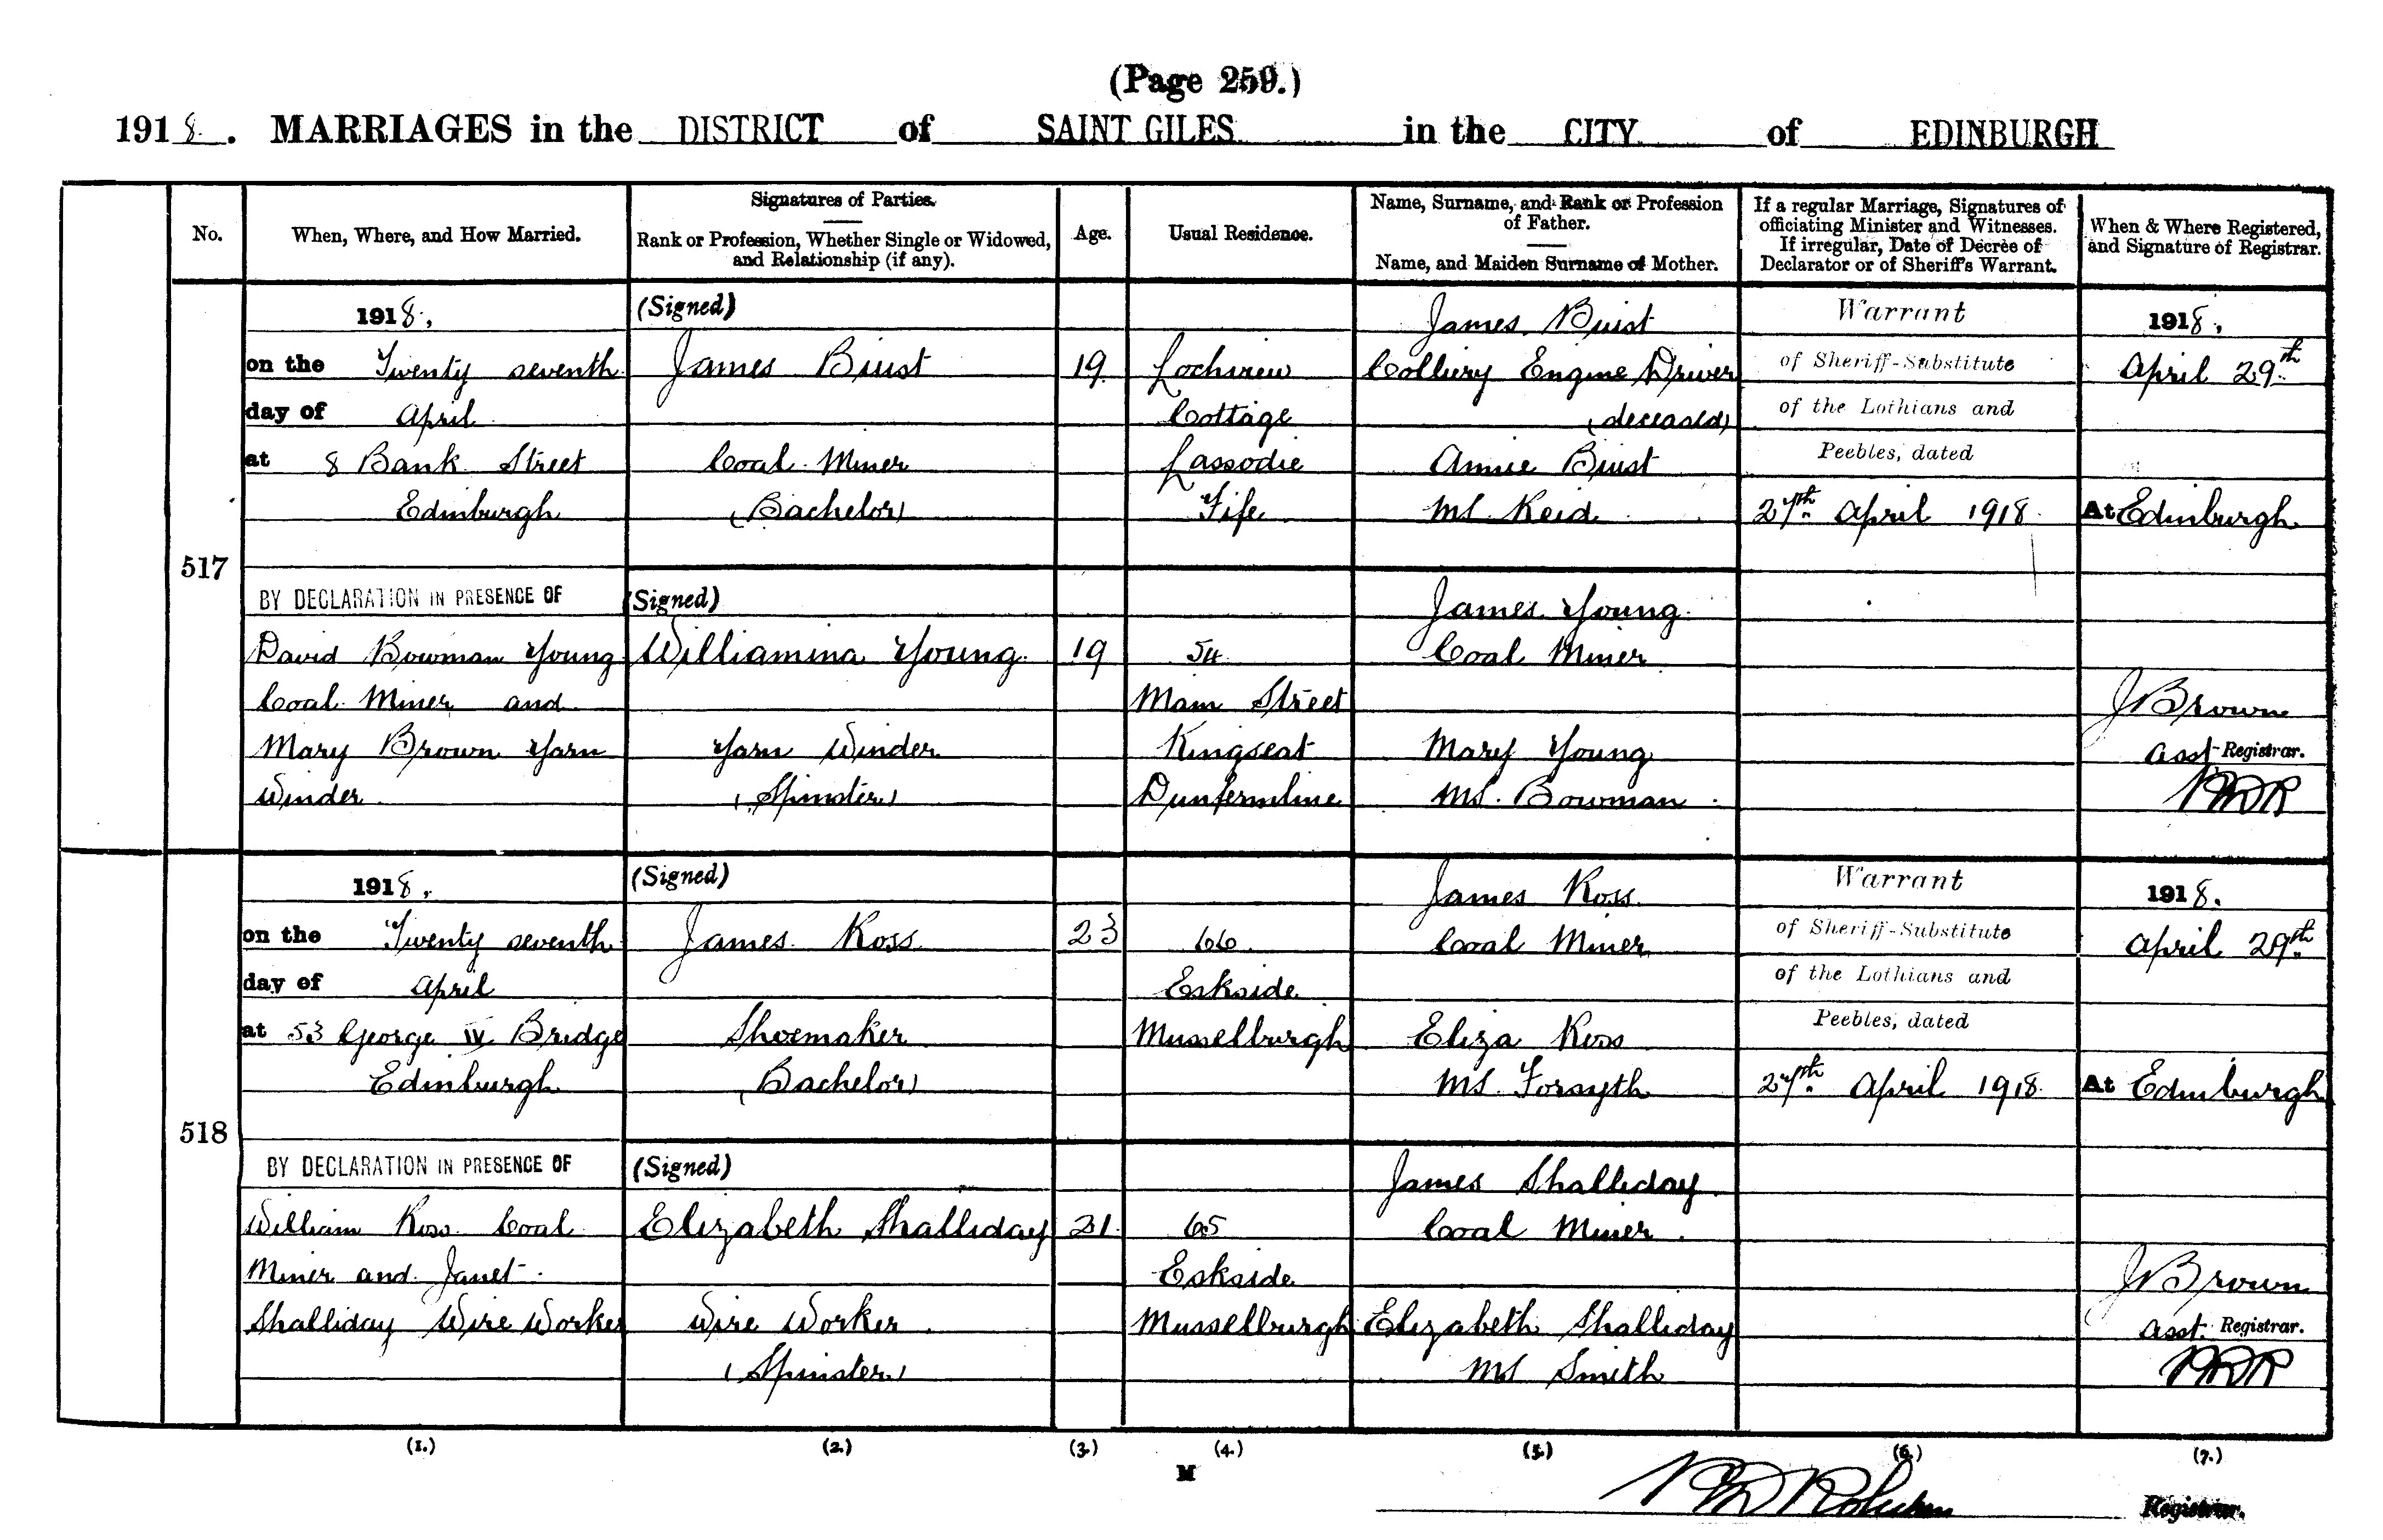 (Page 259.)
1918. MARRIAGES in the DISTRICT of SAINT GILES in the CITY of EDINBURGH
No.
When, Where, and How Married.
Signatures of Parties.
Rank or Profession, Whether Single or Widowed,
and Relationship (if any).
Age.
Usual Residence.
Name, Surname, and Rank or Profession
of Father.
Name, and Maiden Surname of Mother.
If a regular Marriage, Signatures of
officiating Minister and Witnesses.
If irregular, Date of Decree of
Declarator or of Sheriff's Warrant.
When & Where Registered,
and Signature of Registrar.
517
1918,
on the Twenty seventh
day of April
at 8 Bank Street
Edinburgh
BY DECLARATION IN PRESENCE OF
David Bowman Young
Coal Miner and
Mary Brown Yarn
Winder
(Signed)
James Buist
Coal Miner
(Bachelor)
19
Lochview
Cottage
Lassodie
Fife
James Buist
Colliery Engine Driver
(deceased)
Annie Buist
MS. Reid
Warrant
of Sheriff-Substitute
of the Lothians and
Peebles, dated
27th April 1918
1918,
April 29th
At Edinburgh
(Signed)
Williamina Young
Yarn Winder
(Spinster)
19
54
Main Street
Kingseat
Dunfermline
James Young
Coal Miner
Mary Young
MS. Bowman
J Brown
Asst Registrar.
518
1918,
on the Twenty seventh
day of April
at 53 George IV Bridge
Edinburgh
BY DECLARATION IN PRESENCE OF
William Ross Coal
Miner and Janet
Shalliday Wire Worker
(Signed)
James Ross
Shoemaker
(Bachelor)
23
66
Eskside
Musselburgh
James Ross
Coal Miner
Eliza Ross
MS. Forsyth
Warrant
of Sheriff-Substitute
of the Lothians and
Peebles, dated
27th April 1918
1918.
April 29th
At Edinburgh
(Signed)
Elizabeth Shalliday
Wire Worker
(Spinster)
21
65
Eskside
Musselburgh
James Shalliday
Coal Miner
Elizabeth Shalliday
MS Smith
J Brown
Asst. Registrar.
(1.) (2.) (3.) (4.) (5.) (6.) (7.)
M
Registrar.